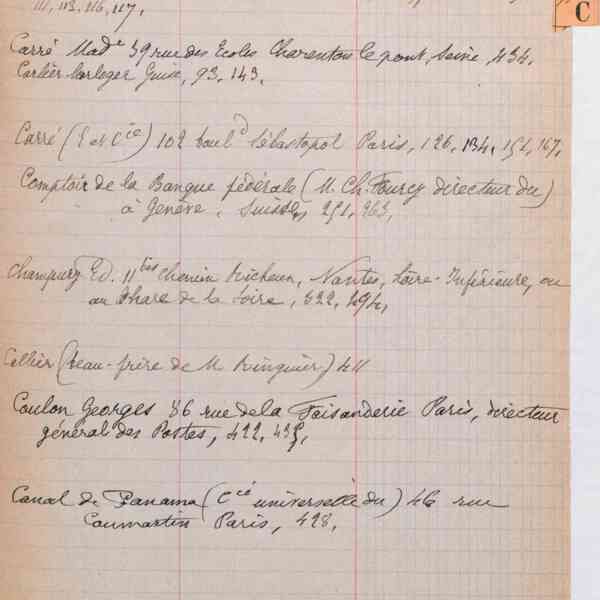 111, 113, 116, 117.
C
Carré Made 59 rue des Ecoles Charenton le pont, Seine, 434.
Carlier horloger Guise, 93, 143.
Carré (E et Cie) 102 bould Sébastopol Paris, 126, 134, 151, 167,
Comptoir de la Banque fédérale (M. Ch. Fourcy directeur du)
à Genève, Suisse, 251, 263,
Champury Ed. 11 bis chemin Richeux, Nantes, Loire-Inférieure, ou
au Phare de la Loire, 322, 494,
Collier (beau-frère de M. Ringuier) 411
Coulon Georges 56 rue de la Faisanderie Paris, directeur
général des Postes, 422, 435,
Canal de Panama (Cie universelle du) 46 rue
Caumartin Paris, 428,